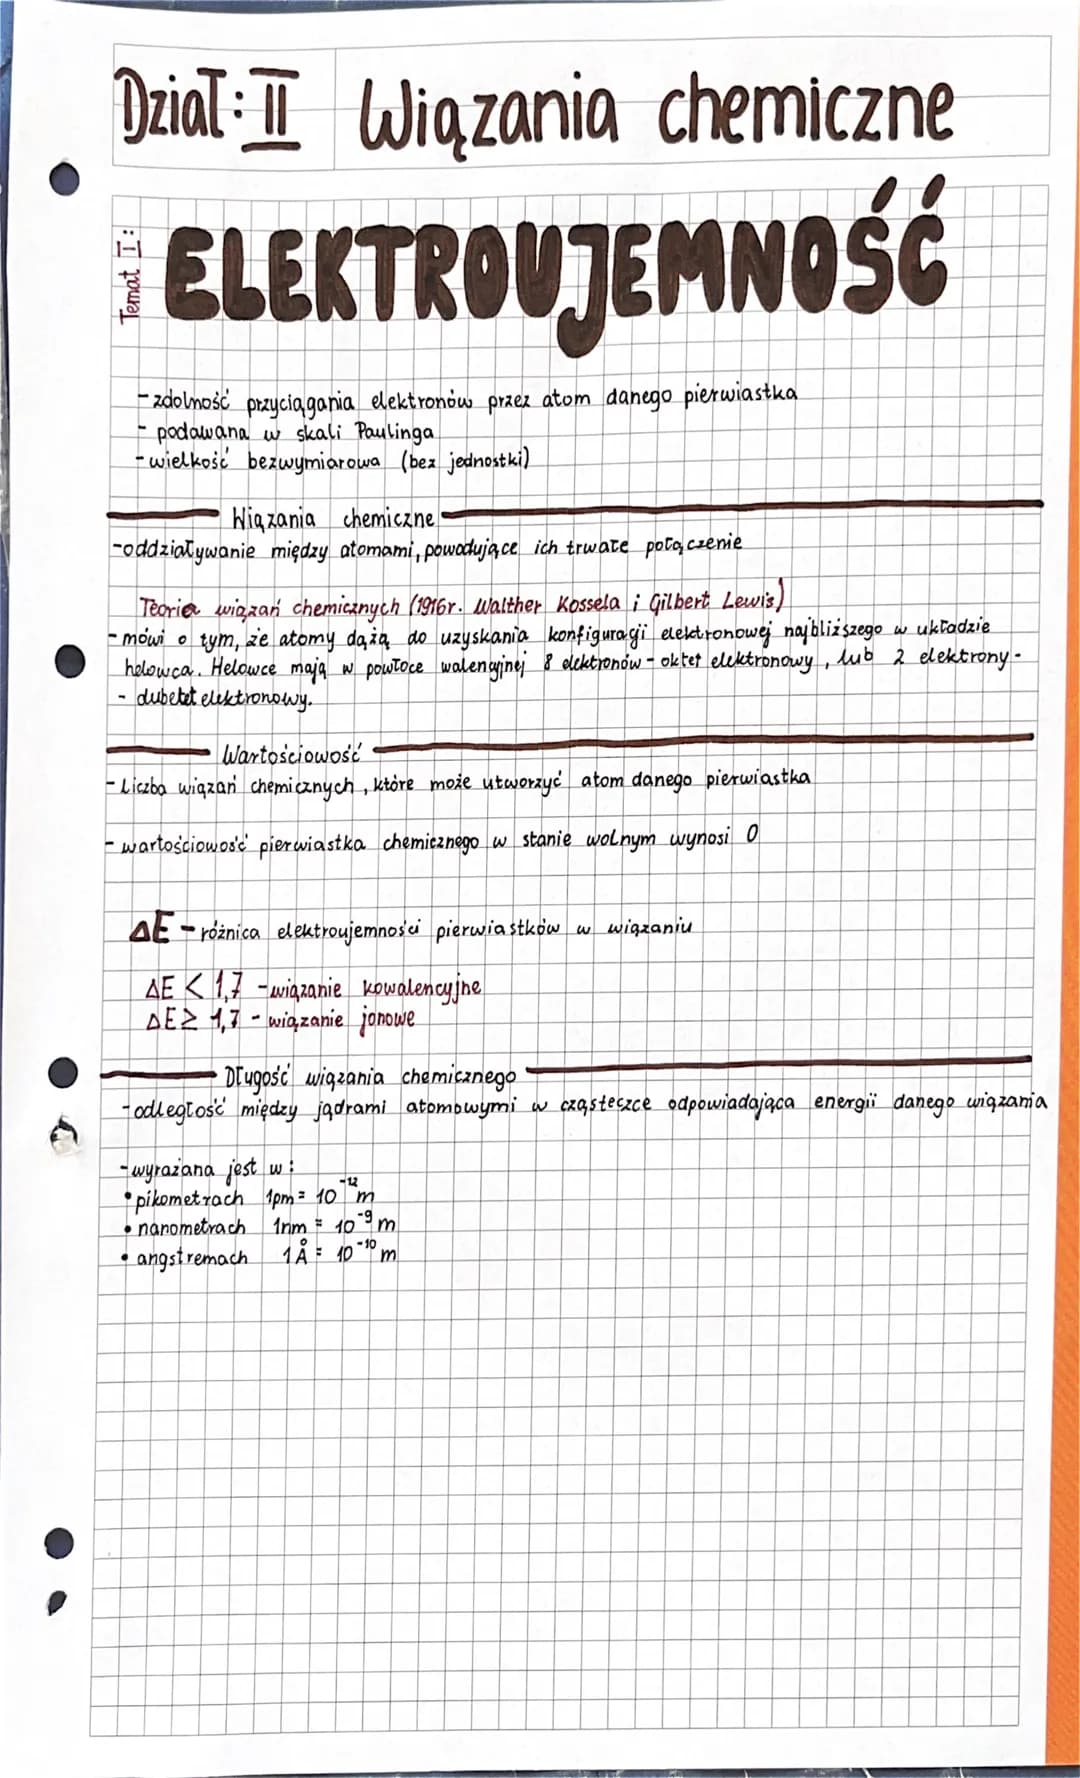 Dział: II Wiązania chemiczne
Temat I:
ELEKTROUJEMNOŚĆ
- zdolność przyciągania elektronów przez atom danego pierwiastka
- podawana w skali Paulinga
- wielkość bezwymiarowa (bez jednostki)
Wiązania chemiczne
- oddziaływanie między atomami, powodujące ich trwałe połączenie
Teoria wiązań chemicznych (1916r. Walther Kossela i Gilbert Lewis)
- mówi o tym, że atomy dążą do uzyskania konfiguracji elektronowej najbliższego w układzie
helowca. Helowce mają w powłoce walencyjnej 8 elektronów - oktet elektronowy, lub 2 elektrony -
- dubetet elektronowy.
Wartościowość
- Liczba wiązań chemicznych, które może utworzyć atom danego pierwiastka
- wartościowość pierwiastka chemicznego w stanie wolnym wynosi 0
ΔE - różnica elektroujemności pierwiastków w wiązaniu
ΔE < 1,7 - wiązanie kowalencyjne
ΔE ≥ 1,7 - wiązanie jonowe
Długość wiązania chemicznego
- odległość między jądrami atomowymi w cząsteczce odpowiadająca energii danego wiązania
- wyrażana jest w:
• pikometrach 1pm = 10⁻¹² m
• nanometrach 1nm = 10⁻⁹ m
• angstremach 1Å = 10⁻¹⁰ m